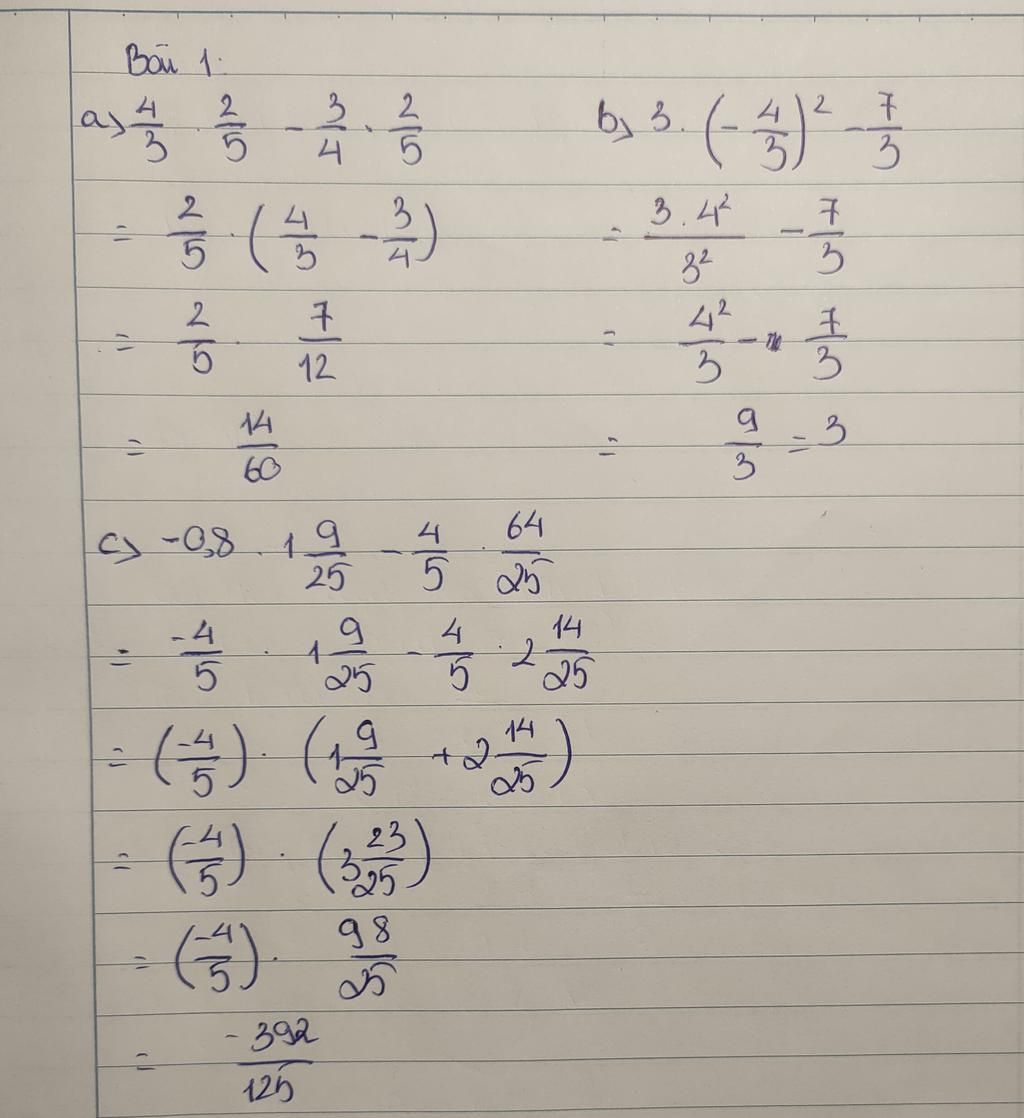 Bài 1:
a) 4/3 . 2/5 - 3/4 . 2/5
= 2/5 . (4/3 - 3/4)
= 2/5 . 7/12
= 14/60
b) 3 . (-4/3)² - 7/3
= 3.4²/3² - 7/3
= 4²/3 - 7/3
= 9/3 = 3
c) -0,8 . 1 9/25 - 4/5 . 64/25
= -4/5 . 1 9/25 - 4/5 . 2 14/25
= (-4/5) . (1 9/25 + 2 14/25)
= (-4/5) . (3 23/25)
= (-4/5) . 98/25
= -392/125